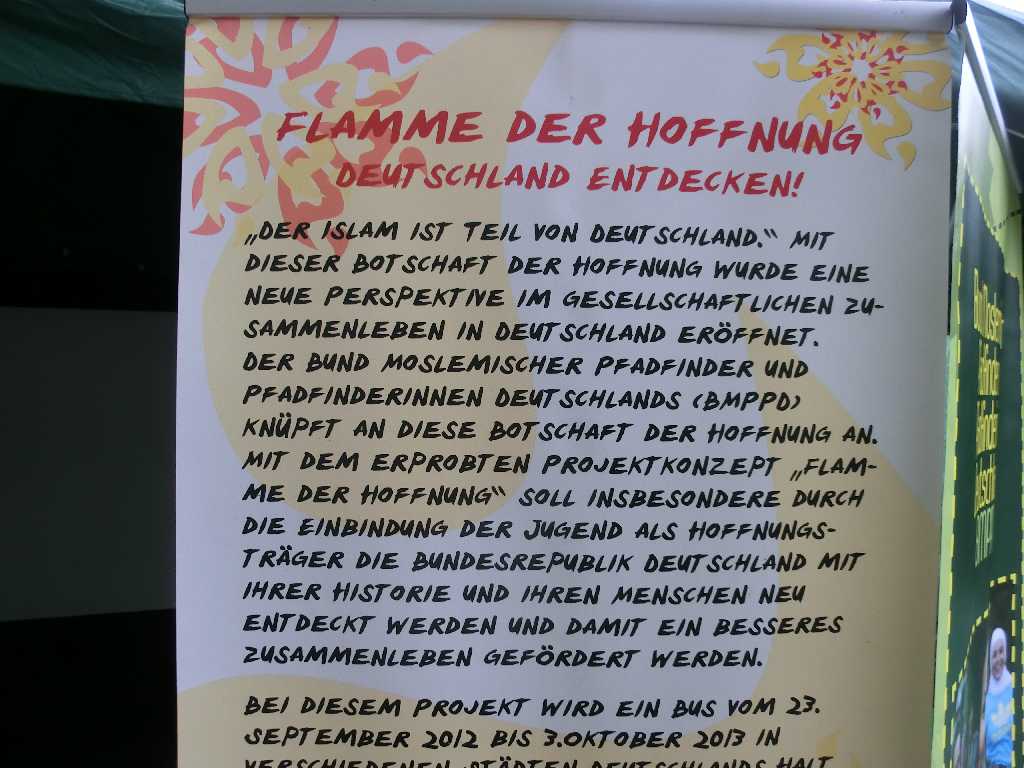 FLAMME DER HOFFNUNG
DEUTSCHLAND ENTDECKEN!
„DER ISLAM IST TEIL VON DEUTSCHLAND.“ MIT
DIESER BOTSCHAFT DER HOFFNUNG WURDE EINE
NEUE PERSPEKTIVE IM GESELLSCHAFTLICHEN ZU-
SAMMENLEBEN IN DEUTSCHLAND ERÖFFNET.
DER BUND MOSLEMISCHER PFADFINDER UND
PFADFINDERINNEN DEUTSCHLANDS (BMPPD)
KNÜPFT AN DIESE BOTSCHAFT DER HOFFNUNG AN.
MIT DEM ERPROBTEN PROJEKTKONZEPT „FLAM-
ME DER HOFFNUNG“ SOLL INSBESONDERE DURCH
DIE EINBINDUNG DER JUGEND ALS HOFFNUNGS-
TRÄGER DIE BUNDESREPUBLIK DEUTSCHLAND MIT
IHRER HISTORIE UND IHREN MENSCHEN NEU
ENTDECKT WERDEN UND DAMIT EIN BESSERES
ZUSAMMENLEBEN GEFÖRDERT WERDEN.
BEI DIESEM PROJEKT WIRD EIN BUS VOM 23.
SEPTEMBER 2012 BIS 3.OKTOBER 2013 IN
VERSCHIEDENEN STÄDTEN DEUTSCHLANDS HALT